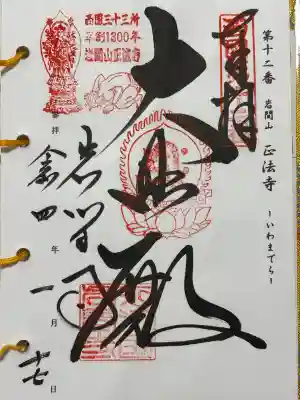 第十二番 岩間山 正法寺 ~いわまでら~
奉拝
大悲殿
岩間寺
西国三十三所
草創1300年
岩間山正法寺
奉拝
令四年一月十七日